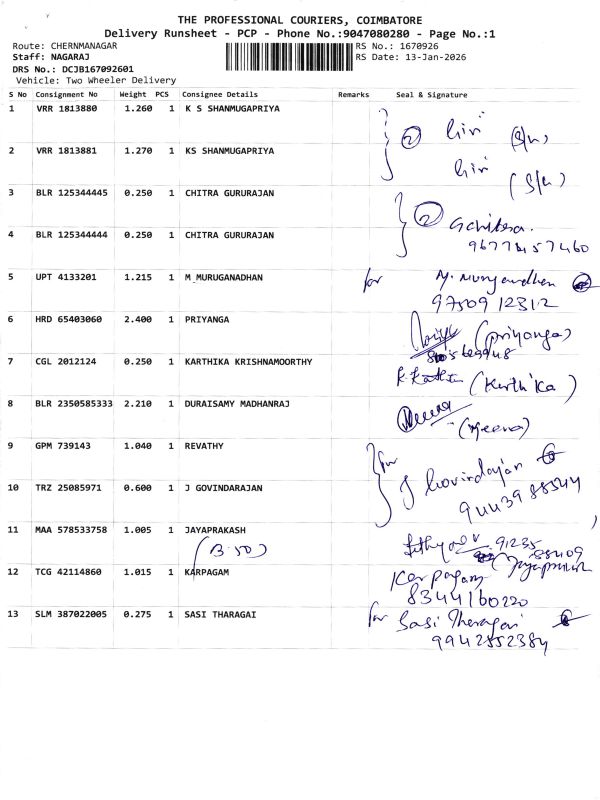 THE PROFESSIONAL COURIERS, COIMBATORE
Delivery Runsheet - PCP - Phone No.:9047080280 - Page No.:1
Route: CHERNMANAGAR RS No.: 1670926
Staff: NAGARAJ RS Date: 13-Jan-2026
DRS No.: DCJB167092601
Vehicle: Two Wheeler Delivery
S No Consignment No Weight PCS Consignee Details Remarks Seal & Signature
1 VRR 1813880 1.260 1 K S SHANMUGAPRIYA
2 Giri (S/W)
2 VRR 1813881 1.270 1 KS SHANMUGAPRIYA
Giri (S/W)
3 BLR 125344445 0.250 1 CHITRA GURURAJAN
2 G Chitra.
4 BLR 125344444 0.250 1 CHITRA GURURAJAN
9677457460
5 UPT 4133201 1.215 1 M MURUGANADHAN for M. Murugandhan
97509 12312
6 HRD 65403060 2.400 1 PRIYANGA (priyanga)
7 CGL 2012124 0.250 1 KARTHIKA KRISHNAMOORTHY
(Karthika)
8 BLR 2350585333 2.210 1 DURAISAMY MADHANRAJ
(Meena)
9 GPM 739143 1.040 1 REVATHY for
J Govindarjan
10 TRZ 25085971 0.600 1 J GOVINDARAJAN
94439 88544
11 MAA 578533758 1.005 1 JAYAPRAKASH 91235
(B.50) 88409
(Jayaprakash
12 TCG 42114860 1.015 1 KARPAGAM Karpagam
8344160220
13 SLM 387022005 0.275 1 SASI THARAGAI for Sasi Tharagai
9942552384